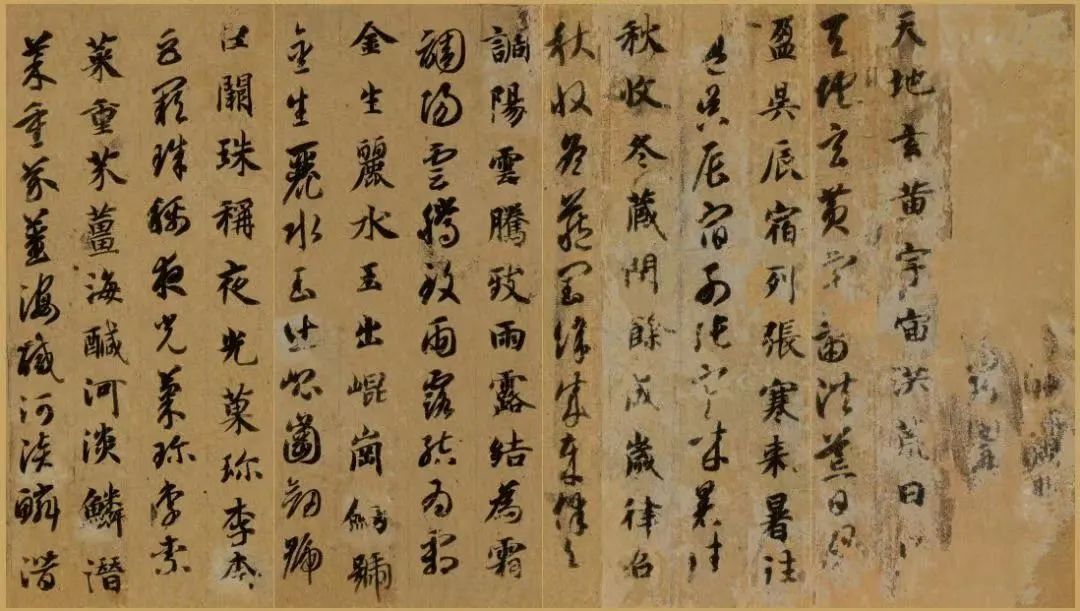 天地玄黃宇宙洪荒日月
天地玄黃宇宙洪荒日月
盈昃辰宿列張寒来暑往
盈昃辰宿列張寒来暑往
秋收冬藏閏餘成歲律召
秋收冬藏閏餘成歲律召
調陽雲騰致雨露結為霜
調陽雲騰致雨露結為霜
金生麗水玉出崐崗劒號
金生麗水玉出崐崗劒號
巨闕珠稱夜光菓珍李柰
巨闕珠稱夜光菓珍李柰
菜重芥薑海醎河淡鱗潛
菜重芥薑海醎河淡鱗潛